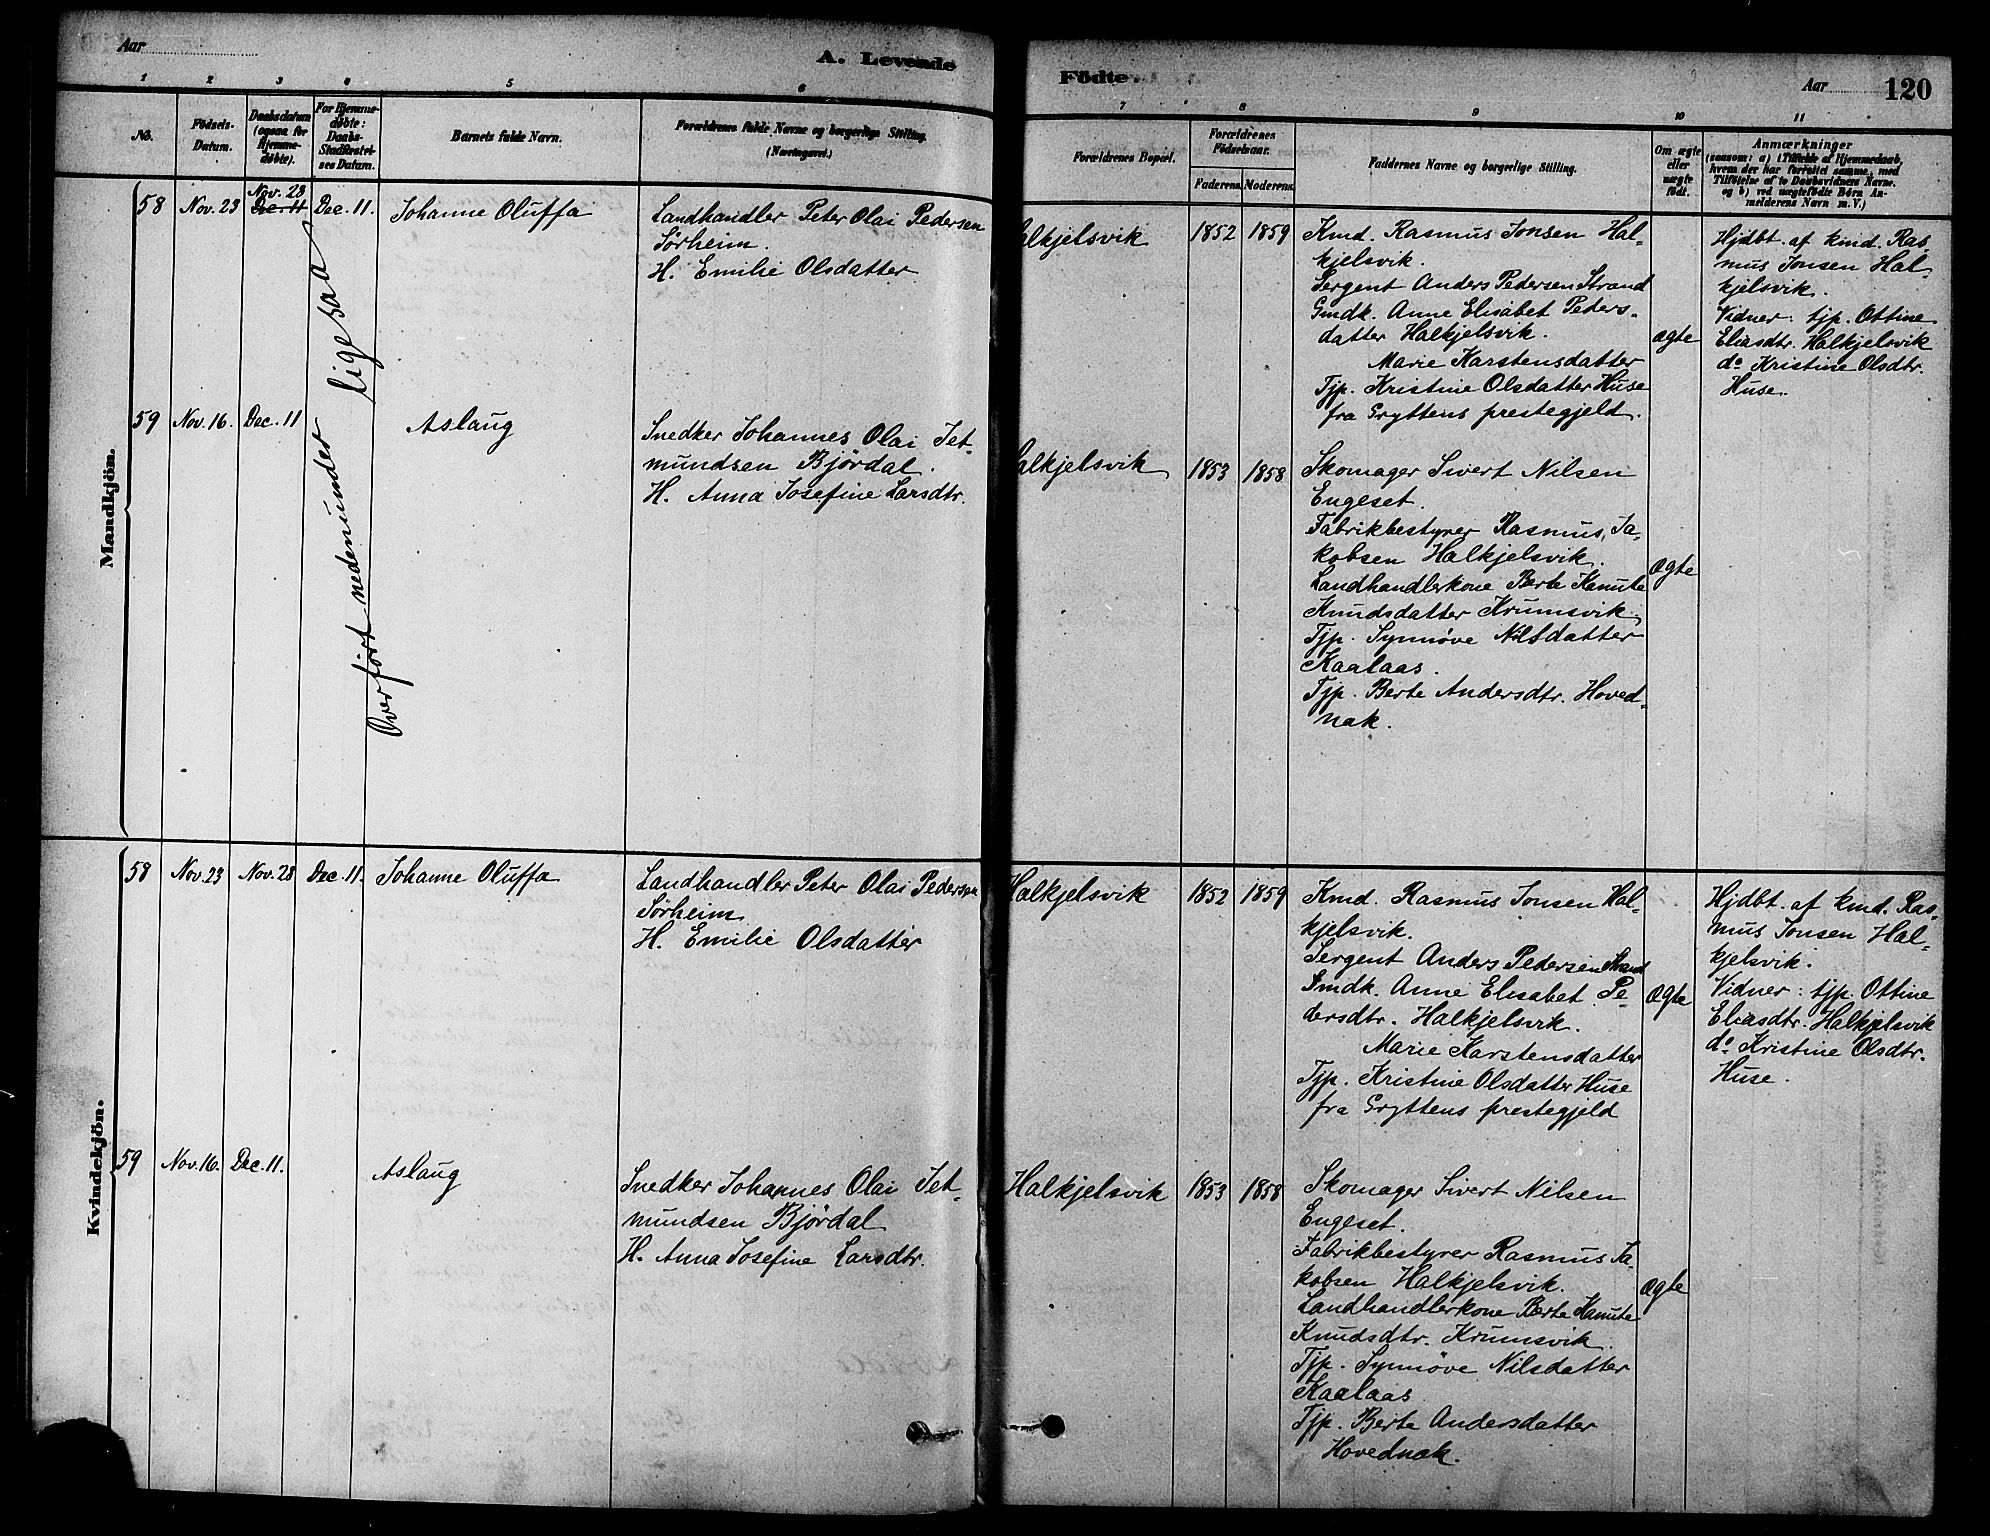 Aar
A. Levende
Födte.
Aar
120
1 2 3 4 5 6 7 8 9 10 11
No.
Födsels-Datum.
Daabsdatum (ogsaa for Hjemmedöbte).
For Hjemmedøbte: Daabs-Stadfæstelses Datum.
Barnets fulde Navn.
Forældrenes fulde Navne og borgerlige Stilling. (Næringsvei.)
Forældrenes Bopæl.
Forældrenes Födselsaar.
Faderens. Moderens.
Faddernes Navne og borgerlige Stilling.
Om ægte eller uægte födt.
Anmærkninger
(saasom: a) i Tilfælde af Hjemmedaab,
hvem der har forrettet samme, med
Tilföielse af to Daabsvidners Navne,
og b) ved uægtefödte Börn An-
melderens Navn m. V.)
Mandkjön.
58 Nov. 23 Nov. 28 Dec. 11 Dec. 11. Johanne Oluffa
Landhandler Peter Olai Pedersen
Sörheim.
H. Emilie Olsdatter
alkjelsvik 1852 1859
Kmd. Rasmus Jonsen Hal-
kjelsvik.
Sergent Anders Pedersen Strand
Gmdk. Anne Elisabet Peders-
datter Halkjelsvik.
Marie Karstensdatter
Tjp. Kristine Olsdatter Huse
fra Gryttens prestegjeld.
ægte
Hjdbt. af kmd. Ras-
mus Jonsen Hal-
kjelsvik.
Vidner: tjp. Ottine
Eliasdtr. Halkjelsvik
do Kristine Olsdtr.
Huse.
Overført nedenunder ligesaa
59 Nov. 16. Dec. 11 Aslaug
Snedker Johannes Olai Jet-
mundsen Björdal.
H. Anna Josefine Larsdtr.
alkjelsvik 1853 1858
Skomager Sivert Nilsen
Engeset.
Fabrikbestyrer Rasmus Ja-
kobsen Halkjelsvik.
Landhandlerkone Berte Kanute
Knudsdatter Krumsvik.
Tjp. Synnöve Nilsdatter
Kaalaas.
Tjp. Berte Andersdtr. Hoved-
nak.
ægte
Kvindekjön.
58 Nov. 23 Nov. 28 Dec. 11. Johanne Oluffa
Landhandler Peter Olai Pedersen
Sörheim
H. Emilie Olsdatter
Halkjelsvik 1852 1859
Kmd. Rasmus Jonsen Hal-
kjelsvik.
Sergent Anders Pedersen Strand
Smdk. Anne Elisabet Pe-
dersdtr. Halkjelsvik.
Marie Karstensdatter
Tjp. Kristine Olsdatter Huse
fra Gryttens prestegjeld
ægte
Hjdbt. af kmd. Ras-
mus Jonsen Hal-
kjelsvik.
Vidner: tjp. Ottine
Eliasdtr. Halkjelsvik
do Kristine Olsdtr.
Huse.
59 Nov. 16. Dec. 11. Aslaug
Snedker Johannes Olai Jet-
mundsen Björdal
H. Anna Josefine Larsdtr.
Halkjelsvik 1853 1858
Skomager Sivert Nilsen
Engeset.
Fabrikbestyrer Rasmus Ja-
kobsen Halkjelsvik.
Landhandlerkone Berte Kanute
Knudsdtr. Krumsvik.
Tjp. Synnöve Nilsdatter
Kaalaas
Tjp. Berte Andersdatter
Hovednak.
ægte